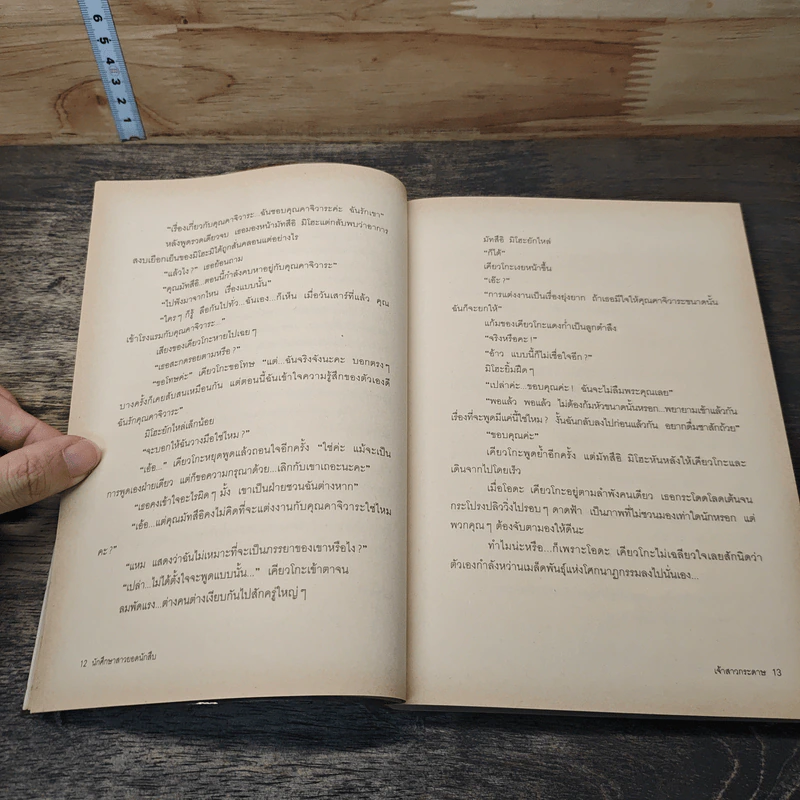 6 5 4 3 2 1
"เรื่องเกี่ยวกับคุณคาจิวาระ...ฉันชอบคุณคาจิวาระค่ะ ฉันรักเขา"
หลังพูดรวดเดียวจบ เธอมองหน้ามัทสึอิ มิโฮะแต่กลับพบว่าอาการ
สงบเยือกเย็นของมิโฮะมิได้ถูกสั่นคลอนแต่อย่างไร
"แล้วไง?" เธอย้อนถาม
"คุณมัทสึอิ...ตอนนี้กำลังคบหาอยู่กับคุณคาจิวาระ"
"ไปฟังมาจากไหน เรื่องแบบนั้น"
"ใครๆ ก็รู้ ลือกันไปทั่ว...ฉันเอง...ก็เห็น เมื่อวันเสาร์ที่แล้ว คุณ
เข้าโรงแรมกับคุณคาจิวาระ..."
เสียงของเคียวโกะหายไปเฉยๆ
"เธอสะกดรอยตามหรือ?"
"ขอโทษค่ะ" เคียวโกะขอโทษ "แต่...ฉันจริงจังนะคะ บอกตรงๆ
บางครั้งก็เคยสับสนเหมือนกัน แต่ตอนนี้ฉันเข้าใจความรู้สึกของตัวเองดี
ฉันรักคุณคาจิวาระ"
มิโฮะยักไหล่เล็กน้อย
"จะบอกให้ฉันวางมือใช่ไหม?"
"เอ้อ..." เคียวโกะหยุดพูดแล้วถอนใจอีกครั้ง "ใช่ค่ะ แม้จะเป็น
การพูดเองฝ่ายเดียว แต่ก็ขอความกรุณาด้วย...เลิกกับเขาเถอะนะคะ"
"เธอคงเข้าใจอะไรผิดๆ มั้ง เขาเป็นฝ่ายชวนฉันต่างหาก"
"เอ้อ...แต่คุณมัทสึอิคงไม่คิดที่จะแต่งงานกับคุณคาจิวาระใช่ไหม
คะ?"
"แหม แสดงว่าฉันไม่เหมาะที่จะเป็นภรรยาของเขาหรือไง?"
"เปล่า...ไม่ได้ตั้งใจจะพูดแบบนั้น..." เคียวโกะเข้าตาจน
ลมพัดแรง...ต่างคนต่างเงียบกันไปสักครู่ใหญ่ๆ
12 นักศึกษาสาวยอดนักสืบ
มัทสึอิ มิโฮะยักไหล่
"ก็ได้"
เคียวโกะเงยหน้าขึ้น
"เอ๊ะ?"
"การแต่งงานเป็นเรื่องยุ่งยาก ถ้าเธอมีใจให้คุณคาจิวาระขนาดนั้น
ฉันก็จะยกให้"
แก้มของเคียวโกะแดงก่ำเป็นลูกตำลึง
"จริงหรือคะ!"
"อ้าว แบบนี้ก็ไม่เชื่อใจอีก?"
มิโฮะยิ้มฝืดๆ
"เปล่าค่ะ...ขอบคุณค่ะ! ฉันจะไม่ลืมพระคุณเลย"
"พอแล้ว พอแล้ว ไม่ต้องก้มหัวขนาดนั้นหรอก...พยายามเข้าแล้วกัน
เรื่องที่จะพูดมีแค่นี้ใช่ไหม? งั้นฉันกลับลงไปก่อนแล้วกัน อยากดื่มชาสักถ้วย"
"ขอบคุณค่ะ"
เคียวโกะพูดย้ำอีกครั้ง แต่มัทสึอิ มิโฮะหันหลังให้เคียวโกะและ
เดินจากไปโดยเร็ว
เมื่อโอดะ เคียวโกะอยู่ตามลำพังคนเดียว เธอกระโดดโลดเต้นจน
กระโปรงปลิววิ่งไปรอบๆ ดาดฟ้า เป็นภาพที่ไม่ชวนมองเท่าใดนักหรอก แต่
พวกคุณๆ ต้องจับตามองให้ดีนะ
ทำไมน่ะหรือ...ก็เพราะโอดะ เคียวโกะไม่เฉลียวใจเลยสักนิดว่า
ตัวเองกำลังหว่านเมล็ดพันธุ์แห่งโศกนาฏกรรมลงไปนั่นเอง...
เจ้าสาวกระดาษ 13